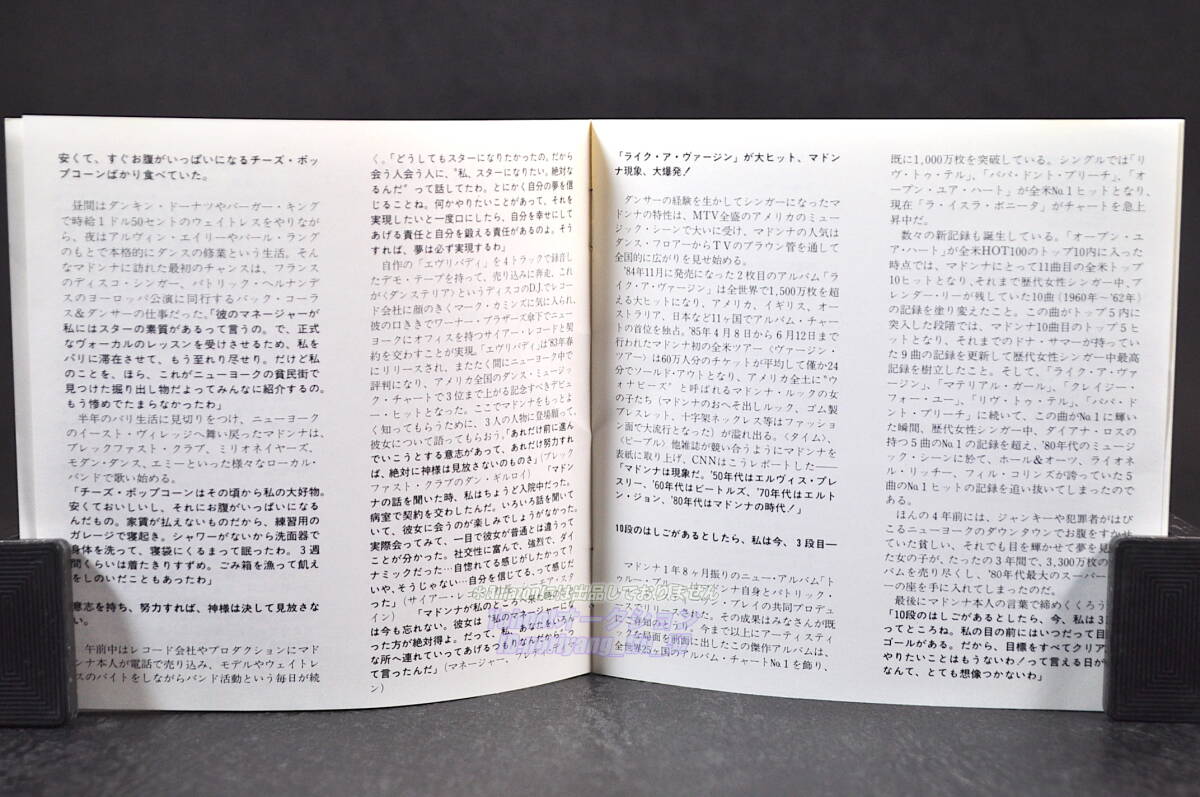 安くて、すぐお腹がいっぱいになるチーズ・ポッ
プコーンばかり食べていた。
昼間はダンキン・ドーナツやバーガー・キング
で時給1ドル50セントのウェイトレスをやりなが
ら、夜はアルヴィン・エイリーやパール・ラング
のもとで本格的にダンスの修業という生活。そん
なマドンナに訪れた最初のチャンスは、フランス
のディスコ・シンガー、パトリック・ヘルナンデ
スのヨーロッパ公演に同行するバック・コーラ
ス&ダンサーの仕事だった。「彼のマネージャーが
私にはスターの素質があるって言うの。で、正式
なヴォーカルのレッスンを受けさせるため、私を
パリに滞在させて、もう至れり尽せり。だけど私
のことを、ほら、これがニューヨークの貧民街で
見つけた掘り出し物だよってみんなに紹介するの。
もう惨めでたまらなかったわ」
半年のパリ生活に見切りをつけ、ニューヨーク
のイースト・ヴィレッジへ舞い戻ったマドンナは、
ブレックファスト・クラブ、ミリオネイヤーズ、
モダン・ダンス、エミーといった様々なローカル・
バンドで歌い始める。
「チーズ・ポップコーンはその頃から私の大好物。
安くておいしいし、それにお腹がいっぱいになる
んだもの。家賃が払えないものだから、練習用の
ガレージで寝起き。シャワーがないから洗面器で
身体を洗って、寝袋にくるまって眠ったわ。3週
間くらいは着たきりすずめ。ごみ箱を漁って飢え
をしのいだこともあったわ」
意志を持ち、努力すれば、神様は決して見放さな
い。
午前中はレコード会社やプロダクションにマド
ンナ本人が電話で売り込み、モデルやウェイトレ
スのバイトをしながらバンド活動という毎日が続
く。「どうしてもスターになりたかったの。だから
会う人会う人に、“私、スターになりたい。絶対な
るんだ”って話してたわ。とにかく自分の夢を信
じることね。何かやりたいことがあって、それを
実現したいと一度口にしたら、自分を幸せにして
あげる責任と自分を鍛える責任があるのよ。そう
すれば、夢は必ず実現するわ」
自作の「エヴリバディ」を4トラックで録音し
たデモ・テープを持って、売り込みに奔走、これ
が〈ダンステリア〉というディスコのD.J.でレコー
ド会社に顔のきくマーク・カミンズに気に入られ、
彼の口ききでワーナー・ブラザース傘下でニュー
ヨークにオフィスを持つサイアー・レコードと契
約を交わすことが実現。「エヴリバディ」は'83年春
にリリースされ、またたく間にニューヨーク中で
評判になり、アメリカ全国のダンス・ミュージッ
ク・チャートで3位まで上がる記念すべきデビュ
ー・ヒットとなった。ここでマドンナをもっとよ
く知ってもらうために、3人の人物に登場願って、
彼女について語ってもらおう。「あれだけ前に進ん
でいこうとする意志があって、あれだけ努力すれ
ば、絶対に神様は見放さないものさ」(ブレック
ファスト・クラブのダン・ギルロイ)「マドン
ナの話を聞いた時、私はちょうど入院中だった。
病室で契約を交わしたんだ。いろいろ話を聞いて
いて、彼女に会うのが楽しみでしょうがなかった。
実際会ってみて、一目で彼女が普通とは違うって
ことが分かった。社交性に富んで、強烈で、ダイ
ナミックだった…自惚れてる感じがしたかって?
いや、そうじゃない…自分を信じてる、って感じだ
った」(サイアー・レコード
「マドンナが私のところへ
は今も忘れない。彼女は「私のマネージャーにな
った方が絶対得よ。だって、私、あなたをいろん
な所へ連れていってあげるつもりなんだから」
て言ったんだ」(マネージャー、フレディ
ン)
「ライク・ア・ヴァージン」が大ヒット、マドン
ナ現象、大爆発!
ダンサーの経験を生かしてシンガーになったマ
ドンナの特性は、MTV全盛のアメリカのミュー
ジック・シーンで大いに受け、マドンナの人気は
ダンス・フロアーからTVのブラウン管を通して
全国的に広がりを見せ始める。
'84年11月に発売になった2枚目のアルバム「ラ
イク・ア・ヴァージン」は全世界で1,500万枚を超
える大ヒットになり、アメリカ、イギリス、オー
ストラリア、日本など11ヶ国でアルバム・チャー
トの首位を独占。'85年4月8日から6月12日まで
行われたマドンナ初の全米ツアー〈ヴァージン・
ツアー〉は60万人分のチケットが平均して僅か24
分でソールド・アウトとなり、アメリカ全土に“ウ
ォナビーズ”と呼ばれるマドンナ・ルックの女
の子たち(マドンナのおへそ出しルック、ゴム製
ブレスレット、十字架ネックレス等はファッショ
ン面で大流行となった)が溢れ出る。〈タイム〉、
〈ピープル〉他雑誌が競い合うようにマドンナを
表紙に取り上げ、CNNはこうレポートした――
「マドンナは現象だ。'50年代はエルヴィス・プレ
スリー、'60年代はビートルズ、'70年代はエルト
ン・ジョン、'80年代はマドンナの時代!」
10段のはしごがあるとしたら、私は今、3段目―
マドンナ1年8ヶ月振りのニュー・アルバム「ト
ゥルー・ブルー」
ドンナ自身とパトリック・
ン・ブレイの共同プロデュ
リースされた。その成果はみなさんが既
に承知のとおり、今まで以上にアーティスティ
ックな局面を前面に出したこの傑作アルバムは、
全世界25ヶ国のアルバム・チャートNo.1を飾り、
既に1,000万枚を突破している。シングルでは「リ
ヴ・トゥ・テル」、「パパ・ドント・プリーチ」、「オ
ープン・ユア・ハート」が全米No.1ヒットとなり、
現在「ラ・イスラ・ボニータ」がチャートを急上
昇中だ。
数々の新記録も誕生している。「オープン・ユ
ア・ハート」が全米HOT100のトップ10内に入った
時点では、マドンナにとって11曲目の全米トップ
10ヒットとなり、それまで歴代女性シンガー中、ブ
レンダ・リーが残していた10曲(1960年～'62年)
の記録を塗り変えたこと。この曲がトップ5内に
突入した段階では、マドンナ10曲目のトップ5ヒ
ットとなり、それまでのドナ・サマーが持ってい
た9曲の記録を更新して歴代女性シンガー中最高
記録を樹立したこと。そして、「ライク・ア・ヴァ
ージン」、「マテリアル・ガール」、「クレイジー・
フォー・ユー」、「リヴ・トゥ・テル」、「パパ・ド
ント・プリーチ」に続いて、この曲がNo.1に輝い
た瞬間、歴代女性シンガー中、ダイアナ・ロスの
持つ5曲のNo.1の記録を超え、'80年代のミュージ
ック・シーンに於て、ホール&オーツ、ライオネ
ル・リッチー、フィル・コリンズが誇っていた5
曲のNo.1ヒットの記録を追い抜いてしまったので
ある。
ほんの4年前には、ジャンキーや犯罪者がはび
こるニューヨークのダウンタウンでお腹をすかせ
ていた貧しい、それでも目を輝かせて夢を見
た女の子が、たったの3年間で、3,300万枚の
バムを売り尽くし、'80年代最大のスーパー
ーの座を手に入れてしまったのだ。
最後にマドンナ本人の言葉で締めくくろう
「10段のはしごがあるとしたら、今、私は3
ってところね。私の目の前にはいつだって目
ゴールがある。だから、目標をすべてクリア
やりたいことはもうないわ!って言える日が
なんて、とても想像つかないわ」